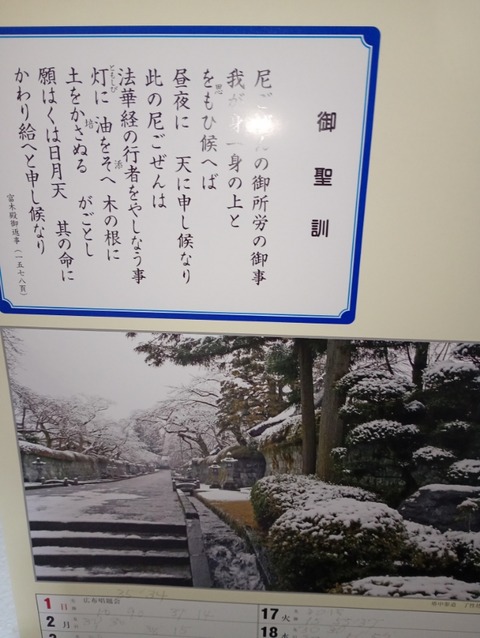 御聖訓
尼ごぜんの御所労の御事
我が身一身の上と
をもひ候へば
思
昼夜に 天に申し候なり
此の尼ごぜんは
法華経の行者をやしなう事
灯に 油をそへ 木の根に
ともしび
添
土をかさぬる がごとし
培
願はくは日月天 其の命に
かわり給へと申し候なり
富木殿御返事(一五七八頁)
1 日 広布唱題会
2 月
17 火
18 水